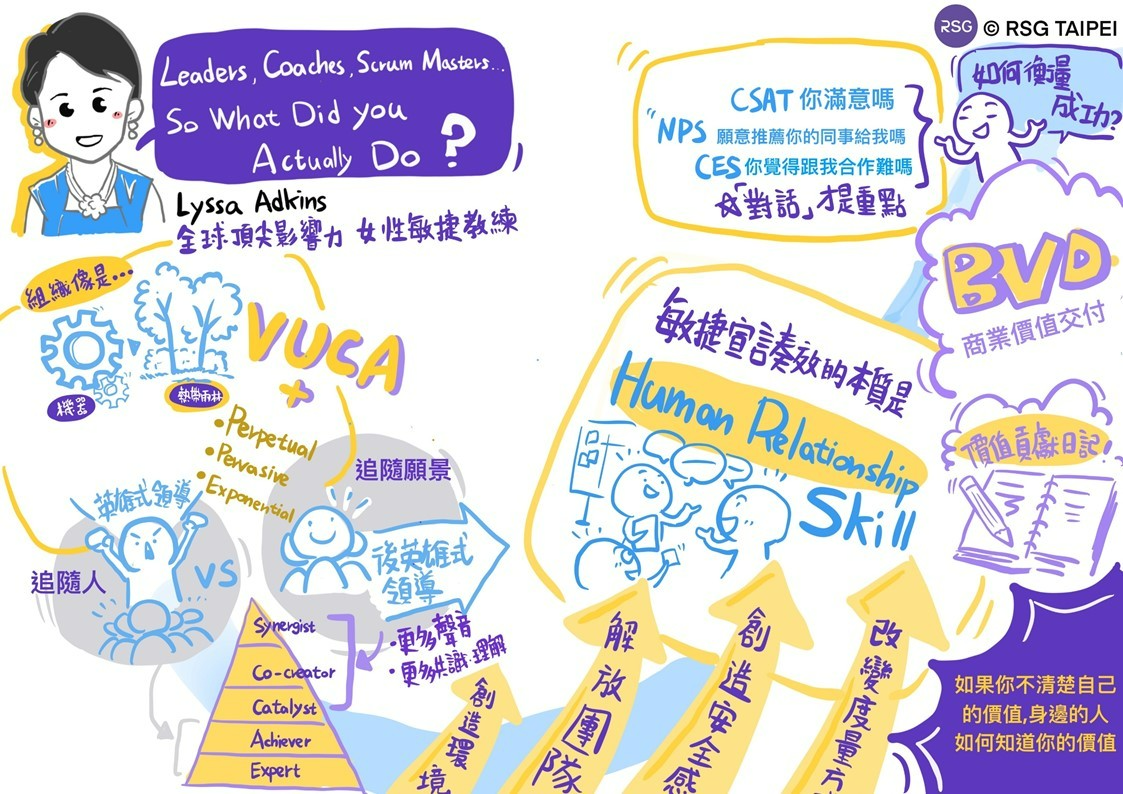 RSG © RSG TAIPEI
Leaders, Coaches, Scrum Masters...
So What Did you
Actually Do ?
Lyssa Adkins
全球頂尖影響力 女性敏捷教練
組織像是...
機器
熱帶雨林
VUCA
+
• Perpetual
• Pervasive
• Exponential
英雄式領導
追隨人
VS
追隨願景
後英雄式
領導
Synergist
Co-creator
Catalyst
Achiever
Expert
• 更多聲音
• 更多共識.理解
CSAT 你滿意嗎
NPS 願意推薦你的同事給我嗎
CES 你覺得跟我合作難嗎
「對話」才是重點
如何衡量
成功?
BVD
商業價值交付
敏捷宣言奏效的本質是
Human Relationship
Skill
價值貢獻日記!
創造環境
解放團隊
創造安全感
改變度量方
如果你不清楚自己
的價值,身邊的人
如何知道你的價值